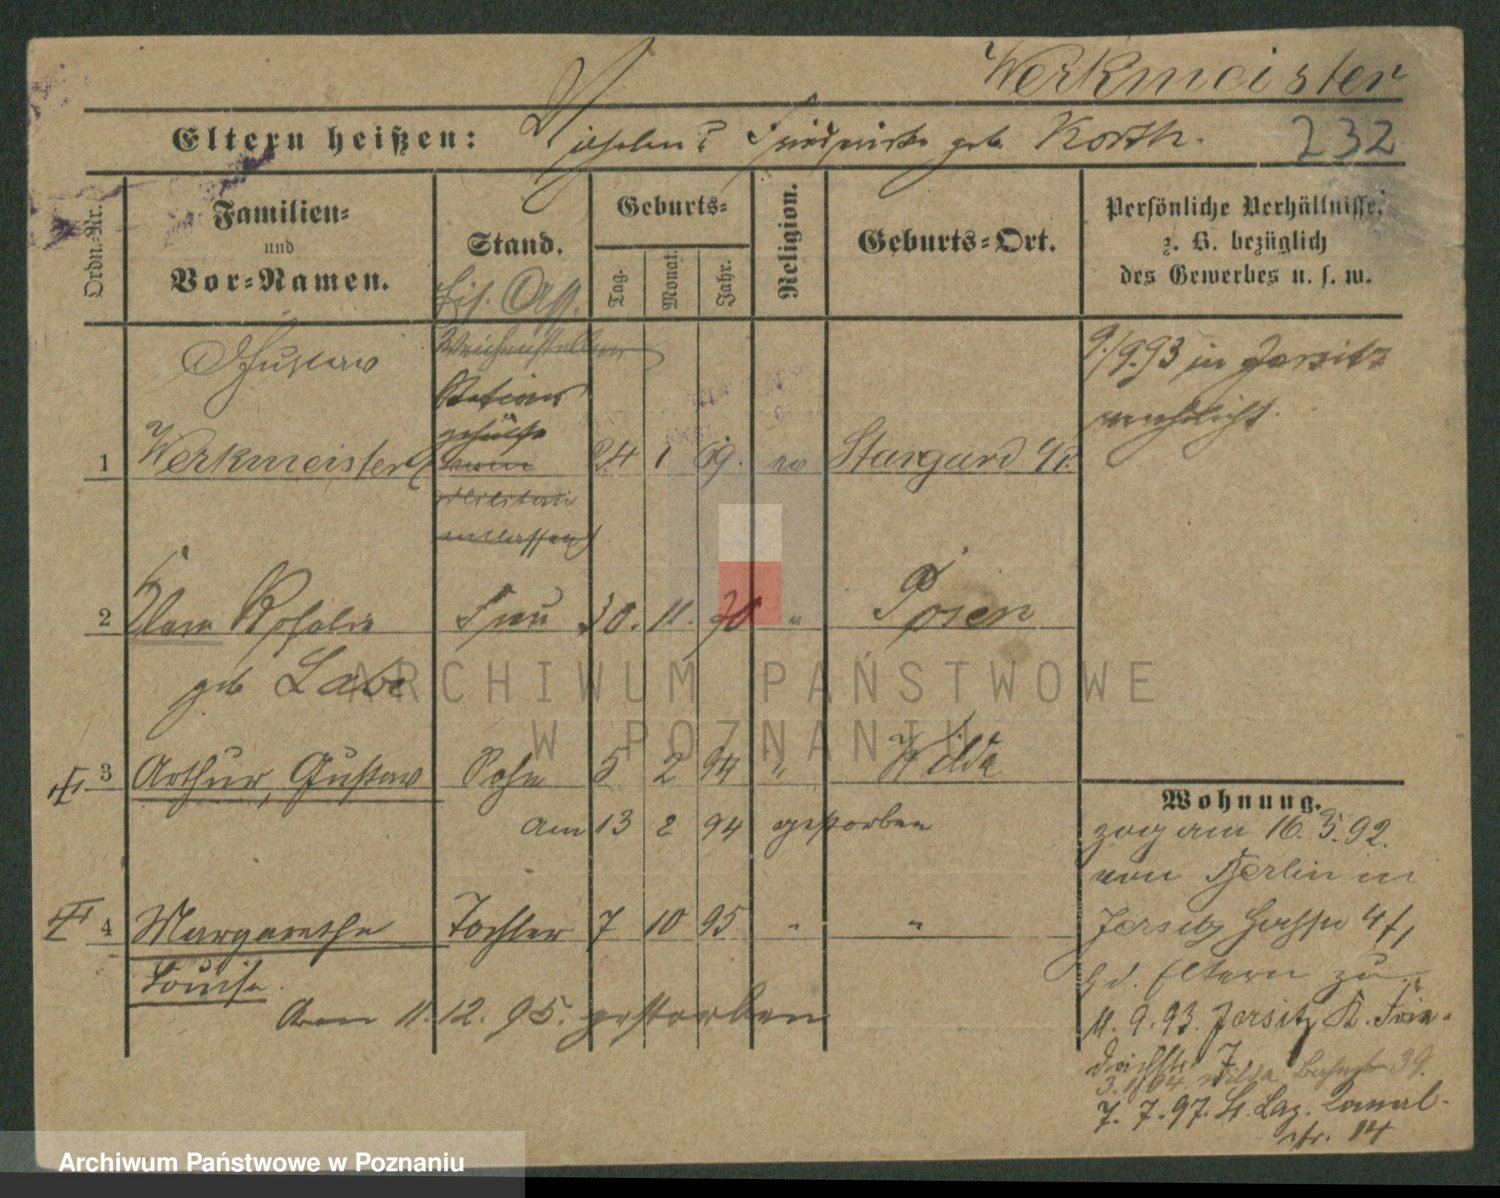 Werkmeister
Eltern heißen: Wilhelm ? Friedericke geb. Korth.
232
Ordn.-Nr.
Familien-
und
Vor-Namen.
Stand.
Geburts-
Tag.
Monat.
Jahr.
Religion.
Geburts-Ort.
Persönliche Verhältnisse,
z. B. bezüglich
des Gewerbes u. s. w.
Eis. Ass.
Weichensteller
Gustav
9./9.93 in Jersitz
Stations
gehülfe
1 Werkmeister 24 1 69. ev Stargard i/P.
vom
Militär
entlassen
2 Clara Rosalie Frau 30. 11. 70 " Posen
geb Labe
3 Arthur, Gustav Sohn 5 2 94 " Wilda
am 13 2 94 gestorben
4 Margarethe Tochter 7 10 95 " "
Louise.
am 11. 12. 95. gestorben
Wohnung.
zog am 16. 5. 92.
von Berlin in
Jersitz 4/1
b/d. Eltern zu
11. 9. 93. Jersitz K. Frie-
drichstr 7
3. 1/94 Wilda Bahnstr 39.
7. 7. 97. St. Laz. Kanal-
str. 14
ARCHIWUM PAŃSTWOWE
W POZNANIU
Archiwum Państwowe w Poznaniu